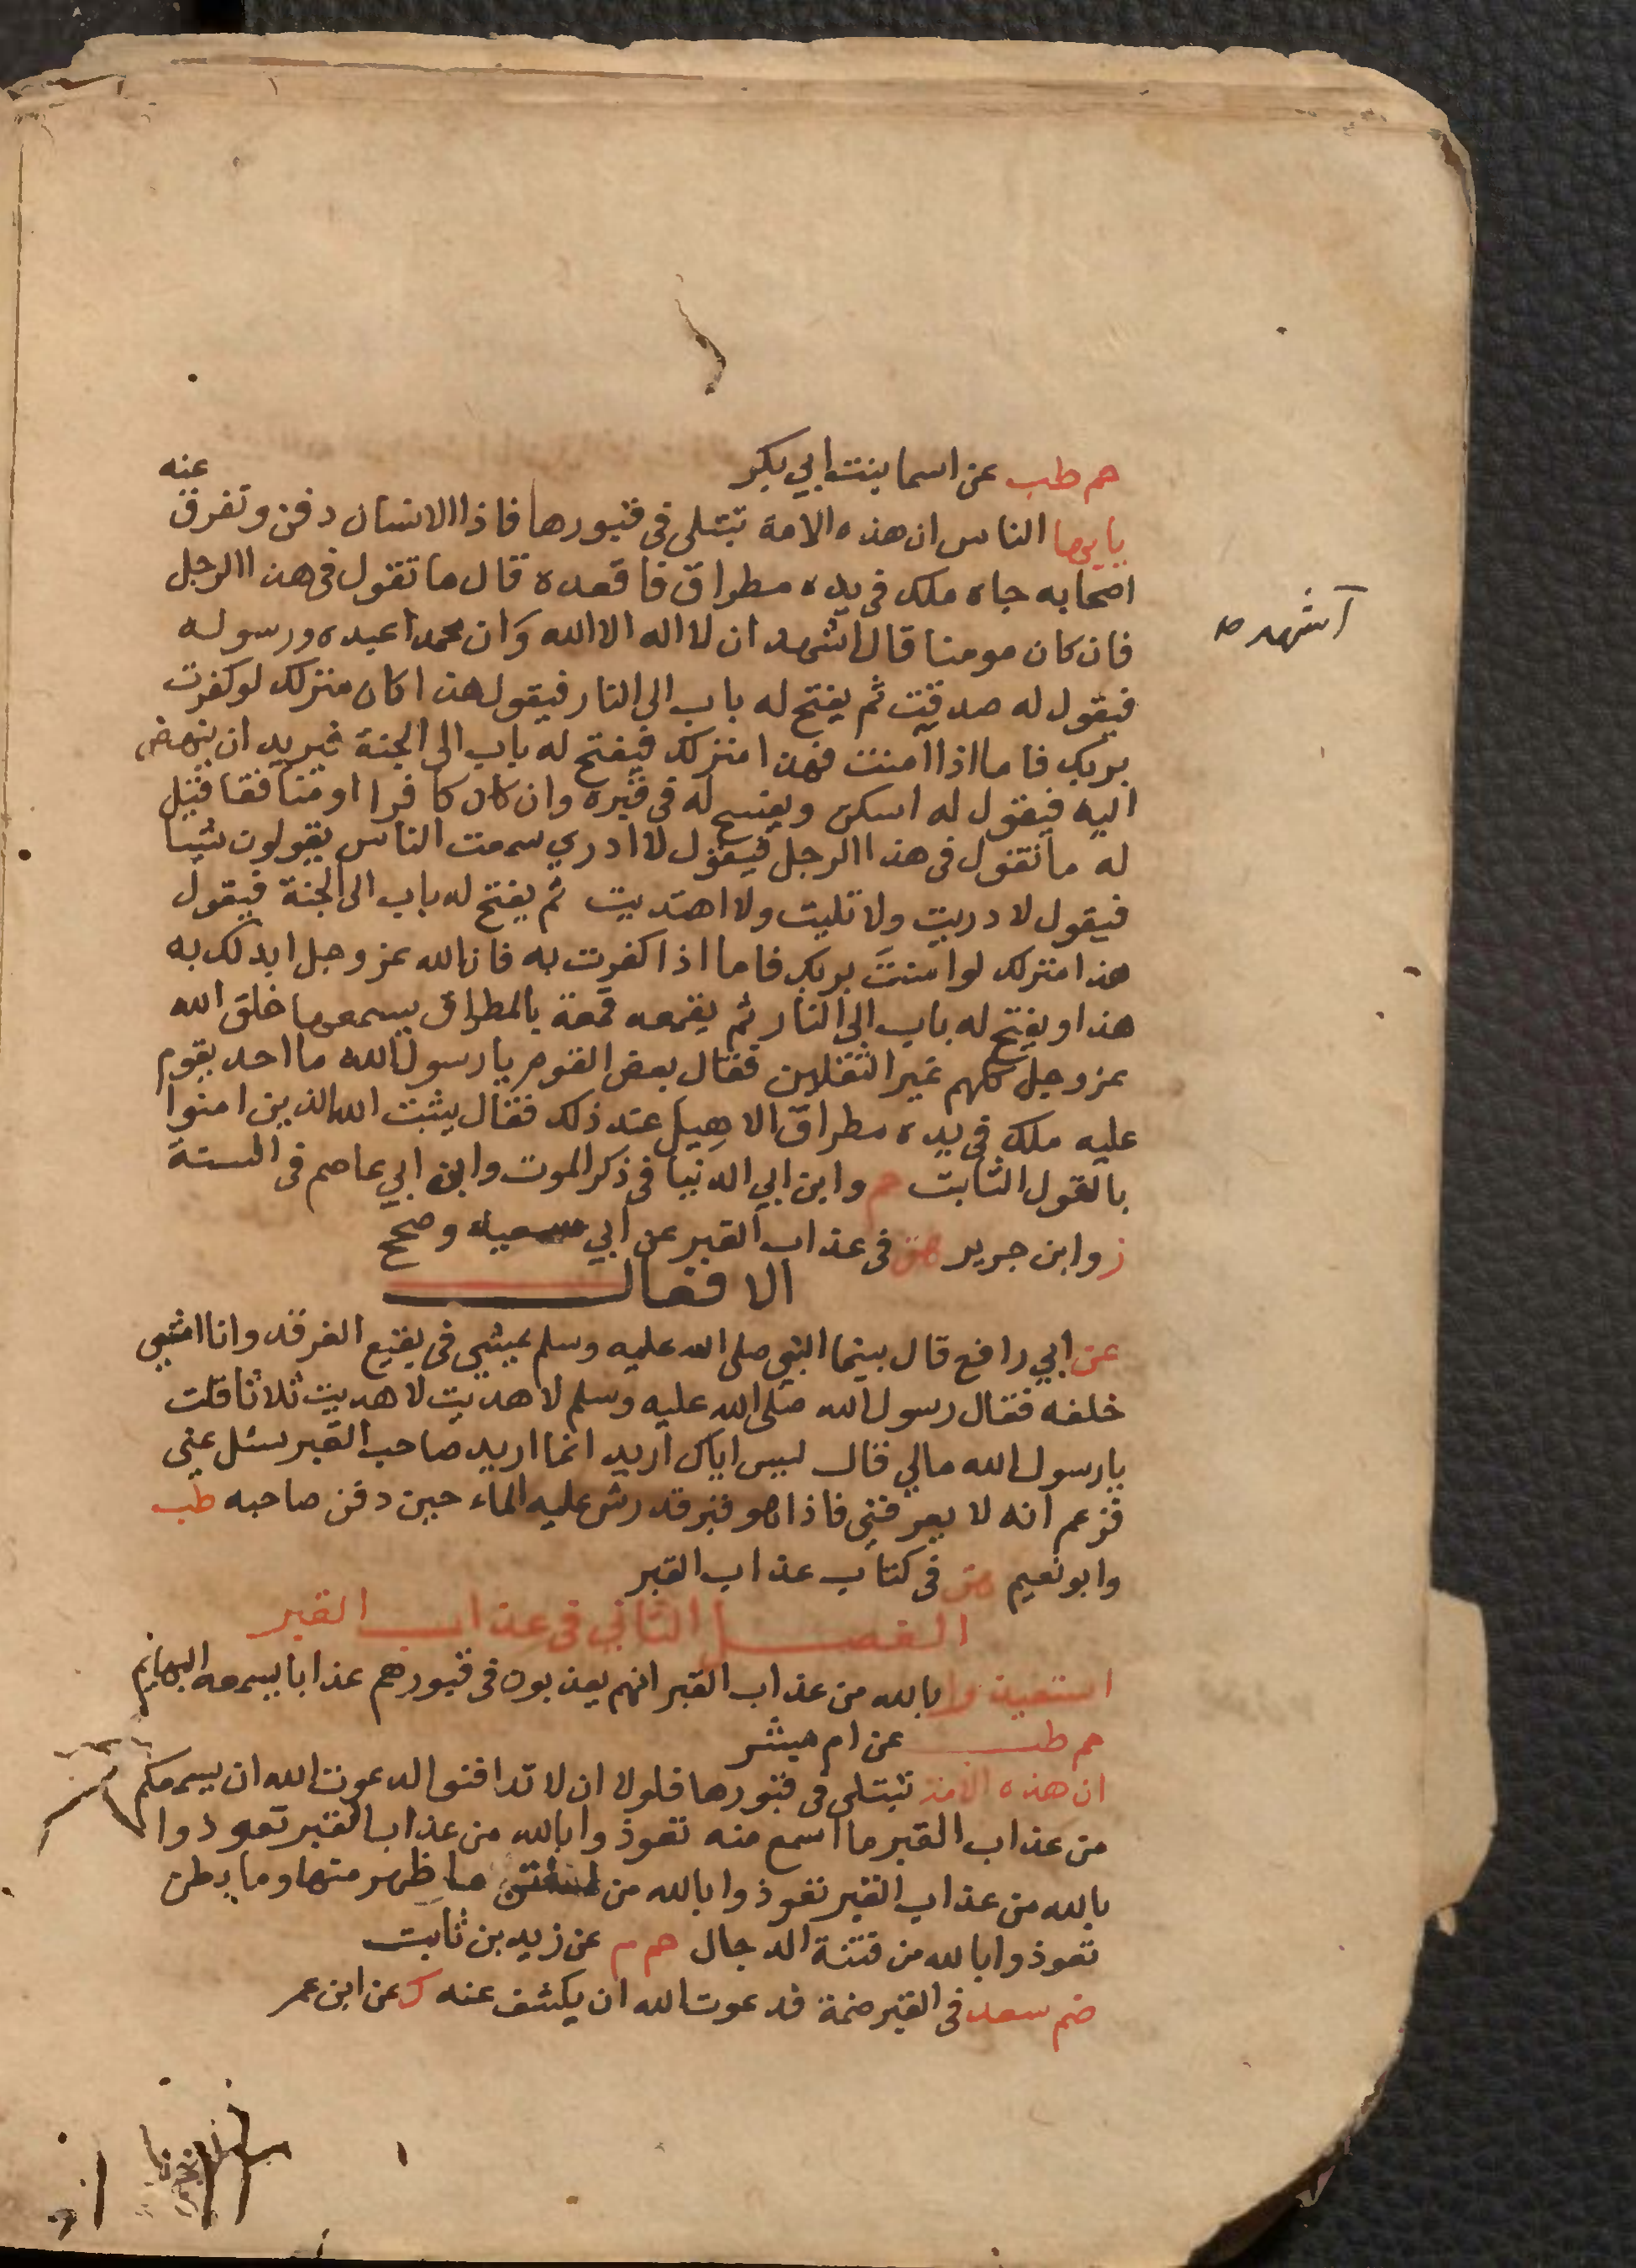 حم طب عن اسما بنت ابي بكر
عنه
يايها الناس ان هذه الامة تبتلى فى قبورها فاذا الانسان دفن وتفرق
اصحابه جاه ملك فى يده مطراق فاقعده قال ما تقول فى هذا الرجل
فان كان مومنا قال اشهد ان لا اله الا الله وان محمدا عبده ورسوله
اشهد
فيقول له صدقت ثم يفتح له باب الى النار فيقول هذا كان منزلك لو كفرت
بربك فاما اذا آمنت فهذا منزلك فيفتح له باب الى الجنة فيريد ان ينهض
اليه فيقول له اسكن ويفسح له فى قبره وان كان كافرا او منافقا قيل
له ما تقول فى هذا الرجل فيقول لا ادري سمعت الناس يقولون شيا
فيقول لا دريت ولا تليت ولا اهتديت ثم يفتح له باب الى الجنة فيقول
هذا منزلك لو امنت بربك فاما اذا كفرت به فان الله عز وجل ابدلك به
هذا ويفتح له باب الى النار ثم يقمعه قمعة بالمطراق يسمعها خلق الله
عز وجل كلهم غير الثقلين فقال بعض القوم يا رسول الله ما احد يقوم
عليه ملك فى يده مطراق الا هيل عند ذلك فقال يثبت الله الذين امنوا
بالقول الثابت حم وابن ابي الدنيا فى ذكر الموت وابن ابي عاصم فى السنة
ز وابن جرير هق فى عذاب القبر عن ابي سعيد وصحح
الافعال
عن ابي رافع قال بينما النبي صلى الله عليه وسلم يمشي فى بقيع الغرقد وانا امشي
خلفه فقال رسول الله صلى الله عليه وسلم لا هديت لا هديت ثلاثا قلت
يا رسول الله مالي قال ليس اياك اريد انما اريد صاحب القبر سئل عنى
فزعم انه لا يعرفنى فاذا هو قبر قد رش عليه الماء حين دفن صاحبه طب
وابو نعيم هق فى كتاب عذاب القبر
الفصل الثاني فى عذاب القبر
استعيذوا بالله من عذاب القبر انهم يعذبون فى قبورهم عذابا يسمعه البهايم
حم طب عن ام مبشر
ان هذه الامة تبتلى فى قبورها فلولا ان لا تدافنوا لدعوت الله ان يسمعكم
من عذاب القبر ما اسمع منه تعوذوا بالله من عذاب القبر تعوذوا
بالله من عذاب القبر تعوذوا بالله من الفتن ما ظهر منها وما بطن
تعوذوا بالله من فتنة الدجال حم م عن زيد بن ثابت
ضم سعد فى القبر ضمة فدعوت الله ان يكشف عنه ك عن ابن عمر